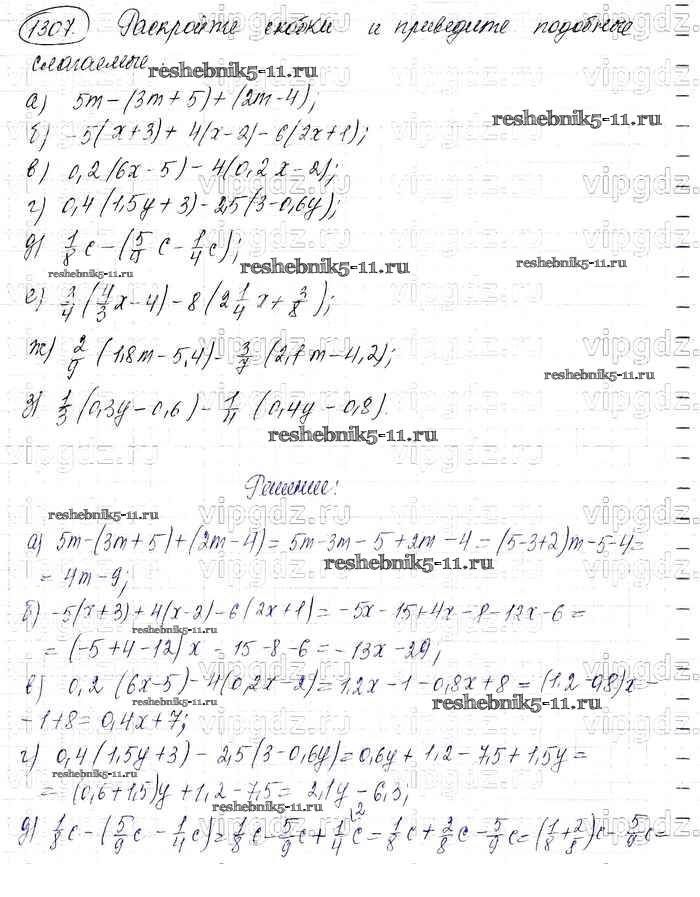 1307. Раскройте скобки и приведите подобные
слагаемые
reshebnik5-11.ru
а) 5m-(3m+5)+(2m-4);
reshebnik5-11.ru
б) -5(x+3)+4(x-2)-6(2x+1);
в) 0,2(6x-5)-4(0,2x-2);
vipgdz.ru vipgdz.ru vipgdz.
г) 0,4(1,5y+3)-2,5(3-0,6y);
д) 1/8 c-(5/9 c-1/4 c);
reshebnik5-11.ru reshebnik5-11.ru reshebnik5-11.ru
е) 3/4(4/3 x-4)-8(2 1/4 x+3/8);
ж) 2/9(1,8m-5,4)-3/7(2,1m-4,2);
reshebnik5-11.ru
з) 1/3(0,3y-0,6)-1/11(0,4y-0,8).
reshebnik5-11.ru
vipgdz.ru vipgdz.ru vipgdz.
Решение:
reshebnik5-11.ru
а) 5m-(3m+5)+(2m-4)=5m-3m-5+2m-4=(5-3+2)m-5-4=
reshebnik5-11.ru
=4m-9;
б) -5(x+3)+4(x-2)-6(2x+1)=-5x-15+4x-8-12x-6=
reshebnik5-11.ru
=(-5+4-12)x-15-8-6=-13x-29;
в) 0,2(6x-5)-4(0,2x-2)=1,2x-1-0,8x+8=(1,2-0,8)x-
reshebnik5-11.ru
-1+8=0,4x+7;
г) 0,4(1,5y+3)-2,5(3-0,6y)=0,6y+1,2-7,5+1,5y=
reshebnik5-11.ru
=(0,6+1,5)y+1,2-7,5=2,1y-6,3;
reshebnik5-11.ru
д) 1/8 c-(5/9 c-1/4 c)=1/8 c-5/9 c+1/4 c=1/8 c+2/8 c-5/9 c=(1/8+2/8)c-5/9 c=